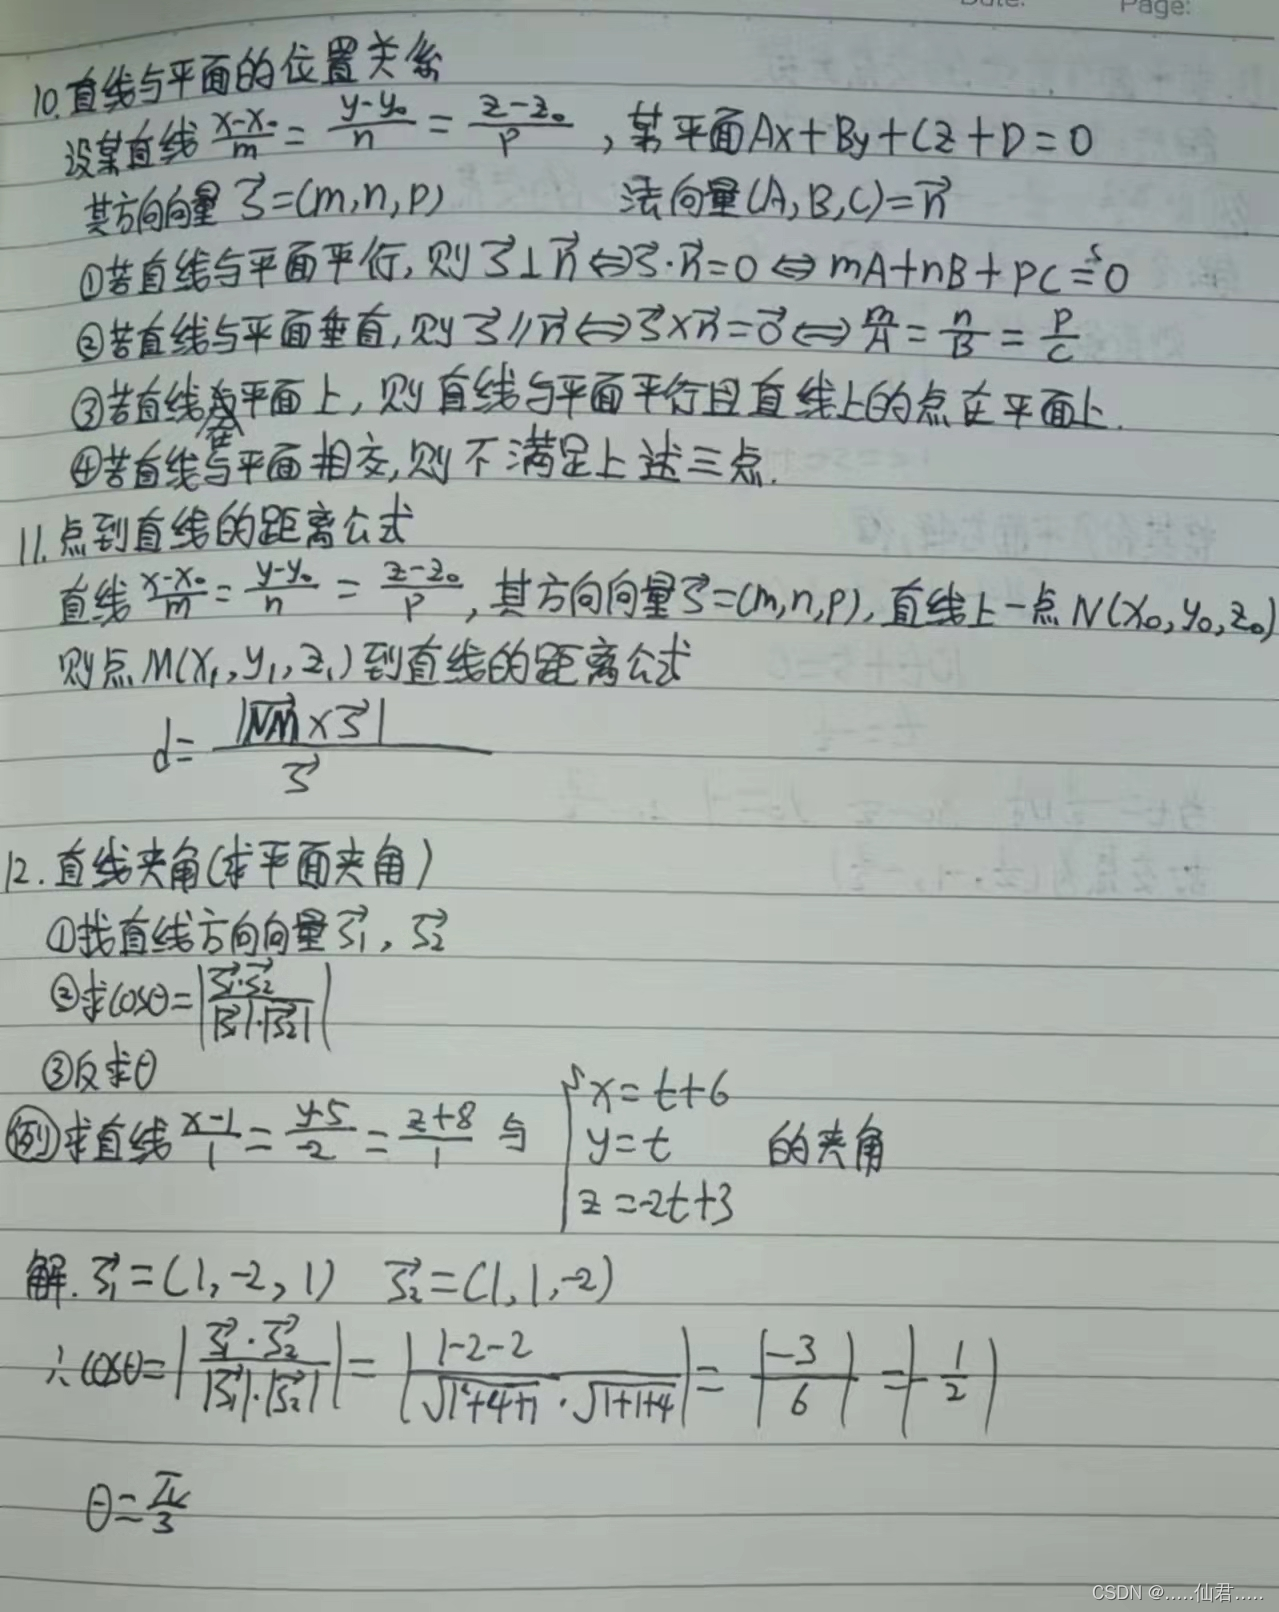 Page:
10.直线与平面的位置关系
设某直线 (x-x₀)/m = (y-y₀)/n = (z-z₀)/p , 某平面Ax+By+Cz+D=0
其方向向量 s⃗=(m,n,p) 法向量(A,B,C)=n⃗
①若直线与平面平行,则 s⃗⊥n⃗⇔s⃗·n⃗=0⇔mA+nB+pC=0
②若直线与平面垂直,则 s⃗∥n⃗⇔s⃗×n⃗=0⃗⇔m/A=n/B=p/C
③若直线在平面上,则直线与平面平行且直线上的点在平面上.
④若直线与平面相交,则不满足上述三点.
11.点到直线的距离公式
直线 (x-x₀)/m = (y-y₀)/n = (z-z₀)/p ,其方向向量s⃗=(m,n,p),直线上一点N(x₀,y₀,z₀)
则点M(x₁,y₁,z₁)到直线的距离公式
d= |NM⃗×s⃗| / s⃗
12.直线夹角(求平面夹角)
①找直线方向向量s⃗₁, s⃗₂
②求cosθ=|s⃗₁·s⃗₂/(|s⃗₁|·|s⃗₂|)|
③反求θ
例 求直线 (x-1)/1 = (y-5)/-2 = (z+8)/1 与 { x=t+6
y=t 的夹角
z=-2t+3
解. s⃗₁=(1,-2,1) s⃗₂=(1,1,-2)
∴cosθ=|s⃗₁·s⃗₂/(|s⃗₁|·|s⃗₂|)|=|(1-2-2)/(√(1²+4+1)·√(1+1+4))|=|-3/6|=|-1/2|
θ=π/3
CSDN @.....仙君.....